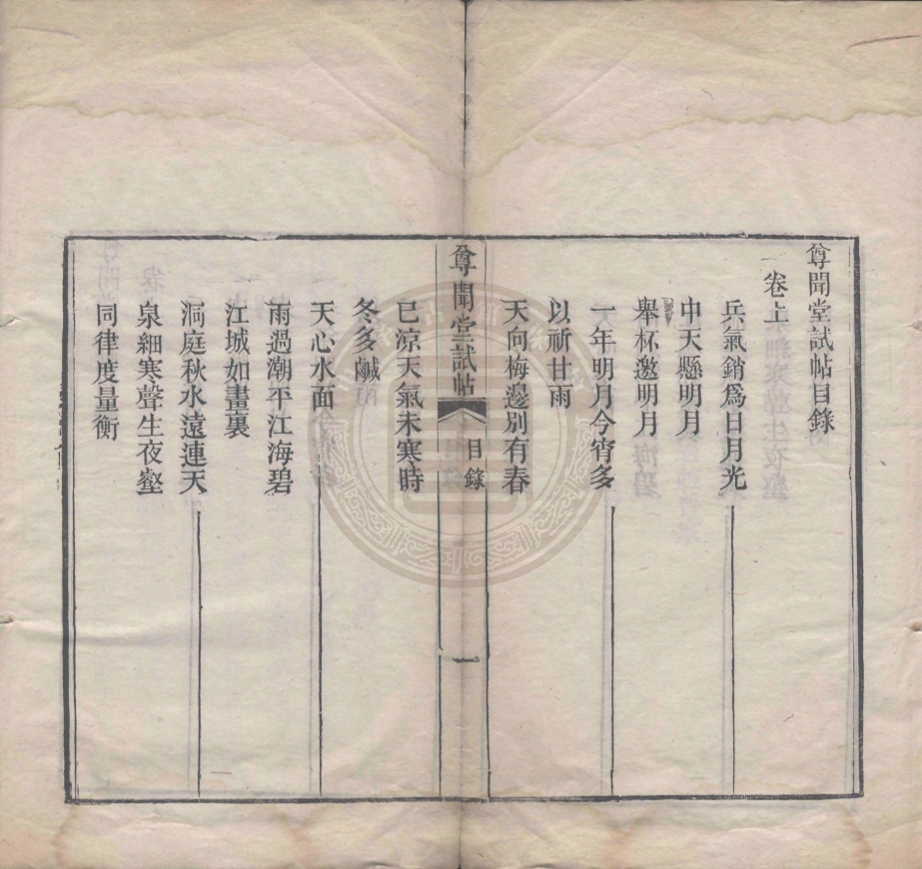 尊聞堂試帖目錄
卷上
兵氣銷爲日月光
中天懸明月
舉杯邀明月
一年明月今宵多
以祈甘雨
天向梅邊別有春
尊聞堂試帖
目錄
一
已涼天氣未寒時
冬多鹹
天心水面
雨過潮平江海碧
江城如畫裏
洞庭秋水遠連天
泉細寒聲生夜壑
同律度量衡